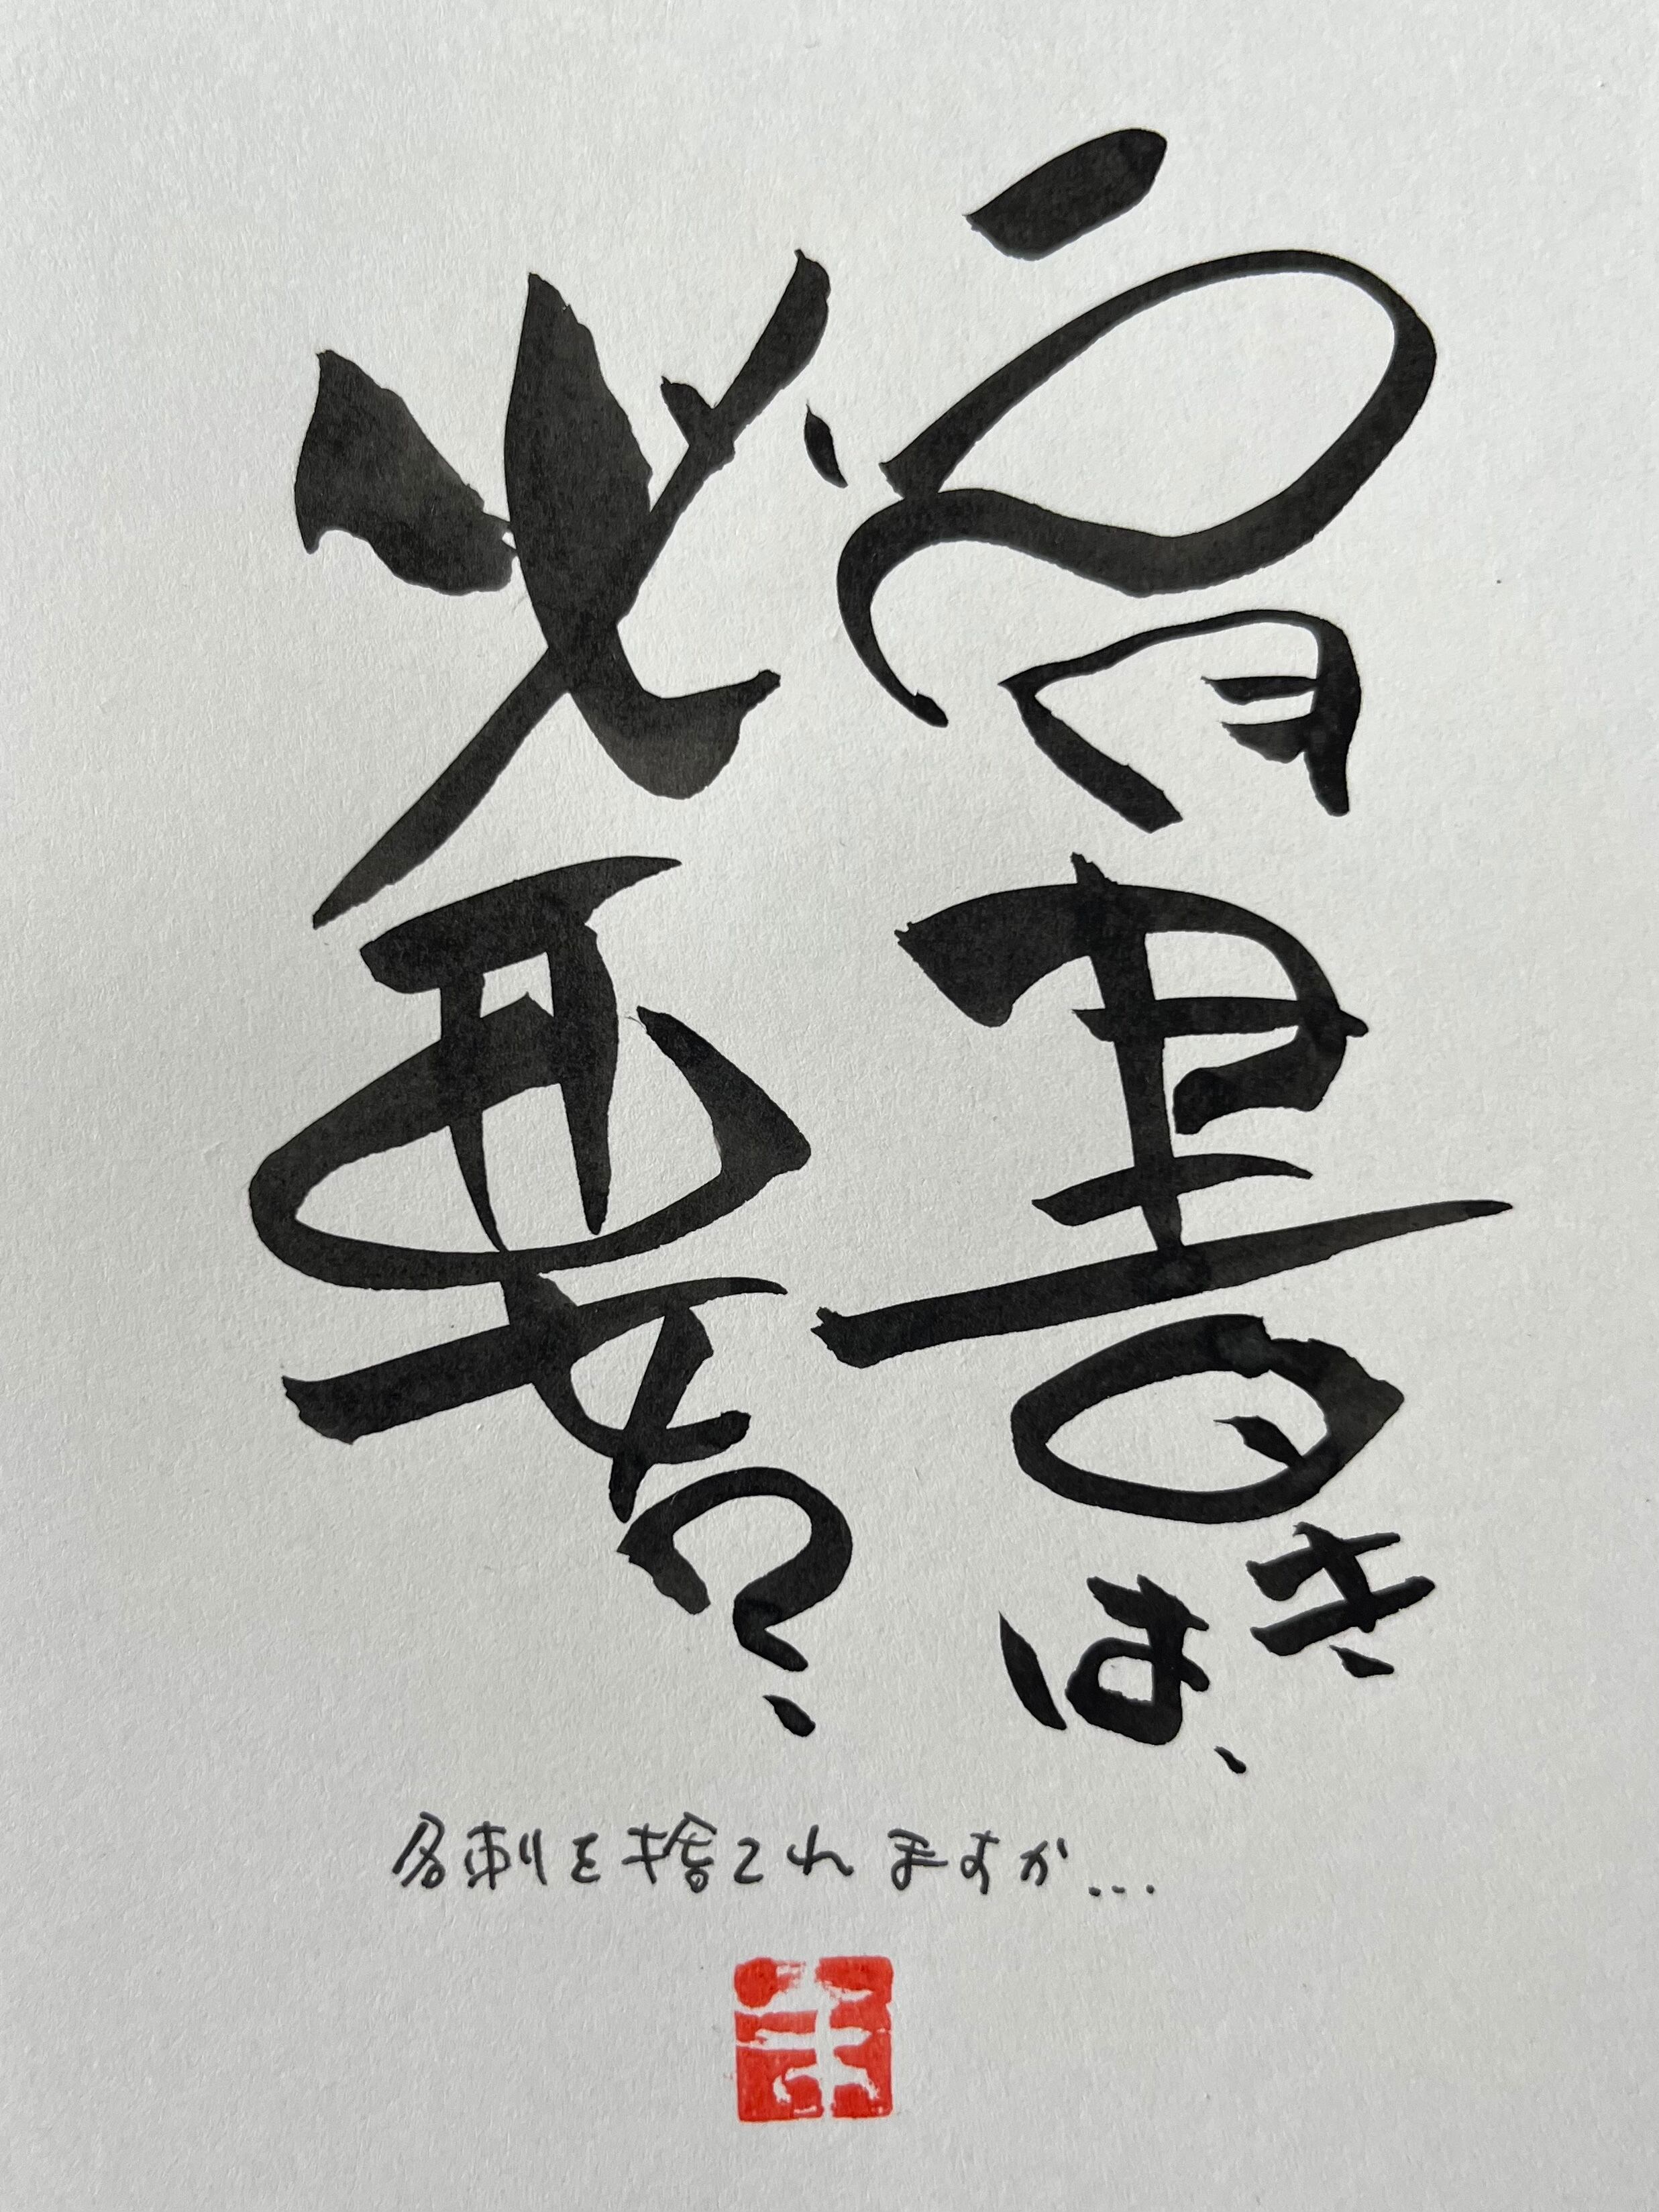 肩書きは、
必要か?
名刺を捨てれますか...